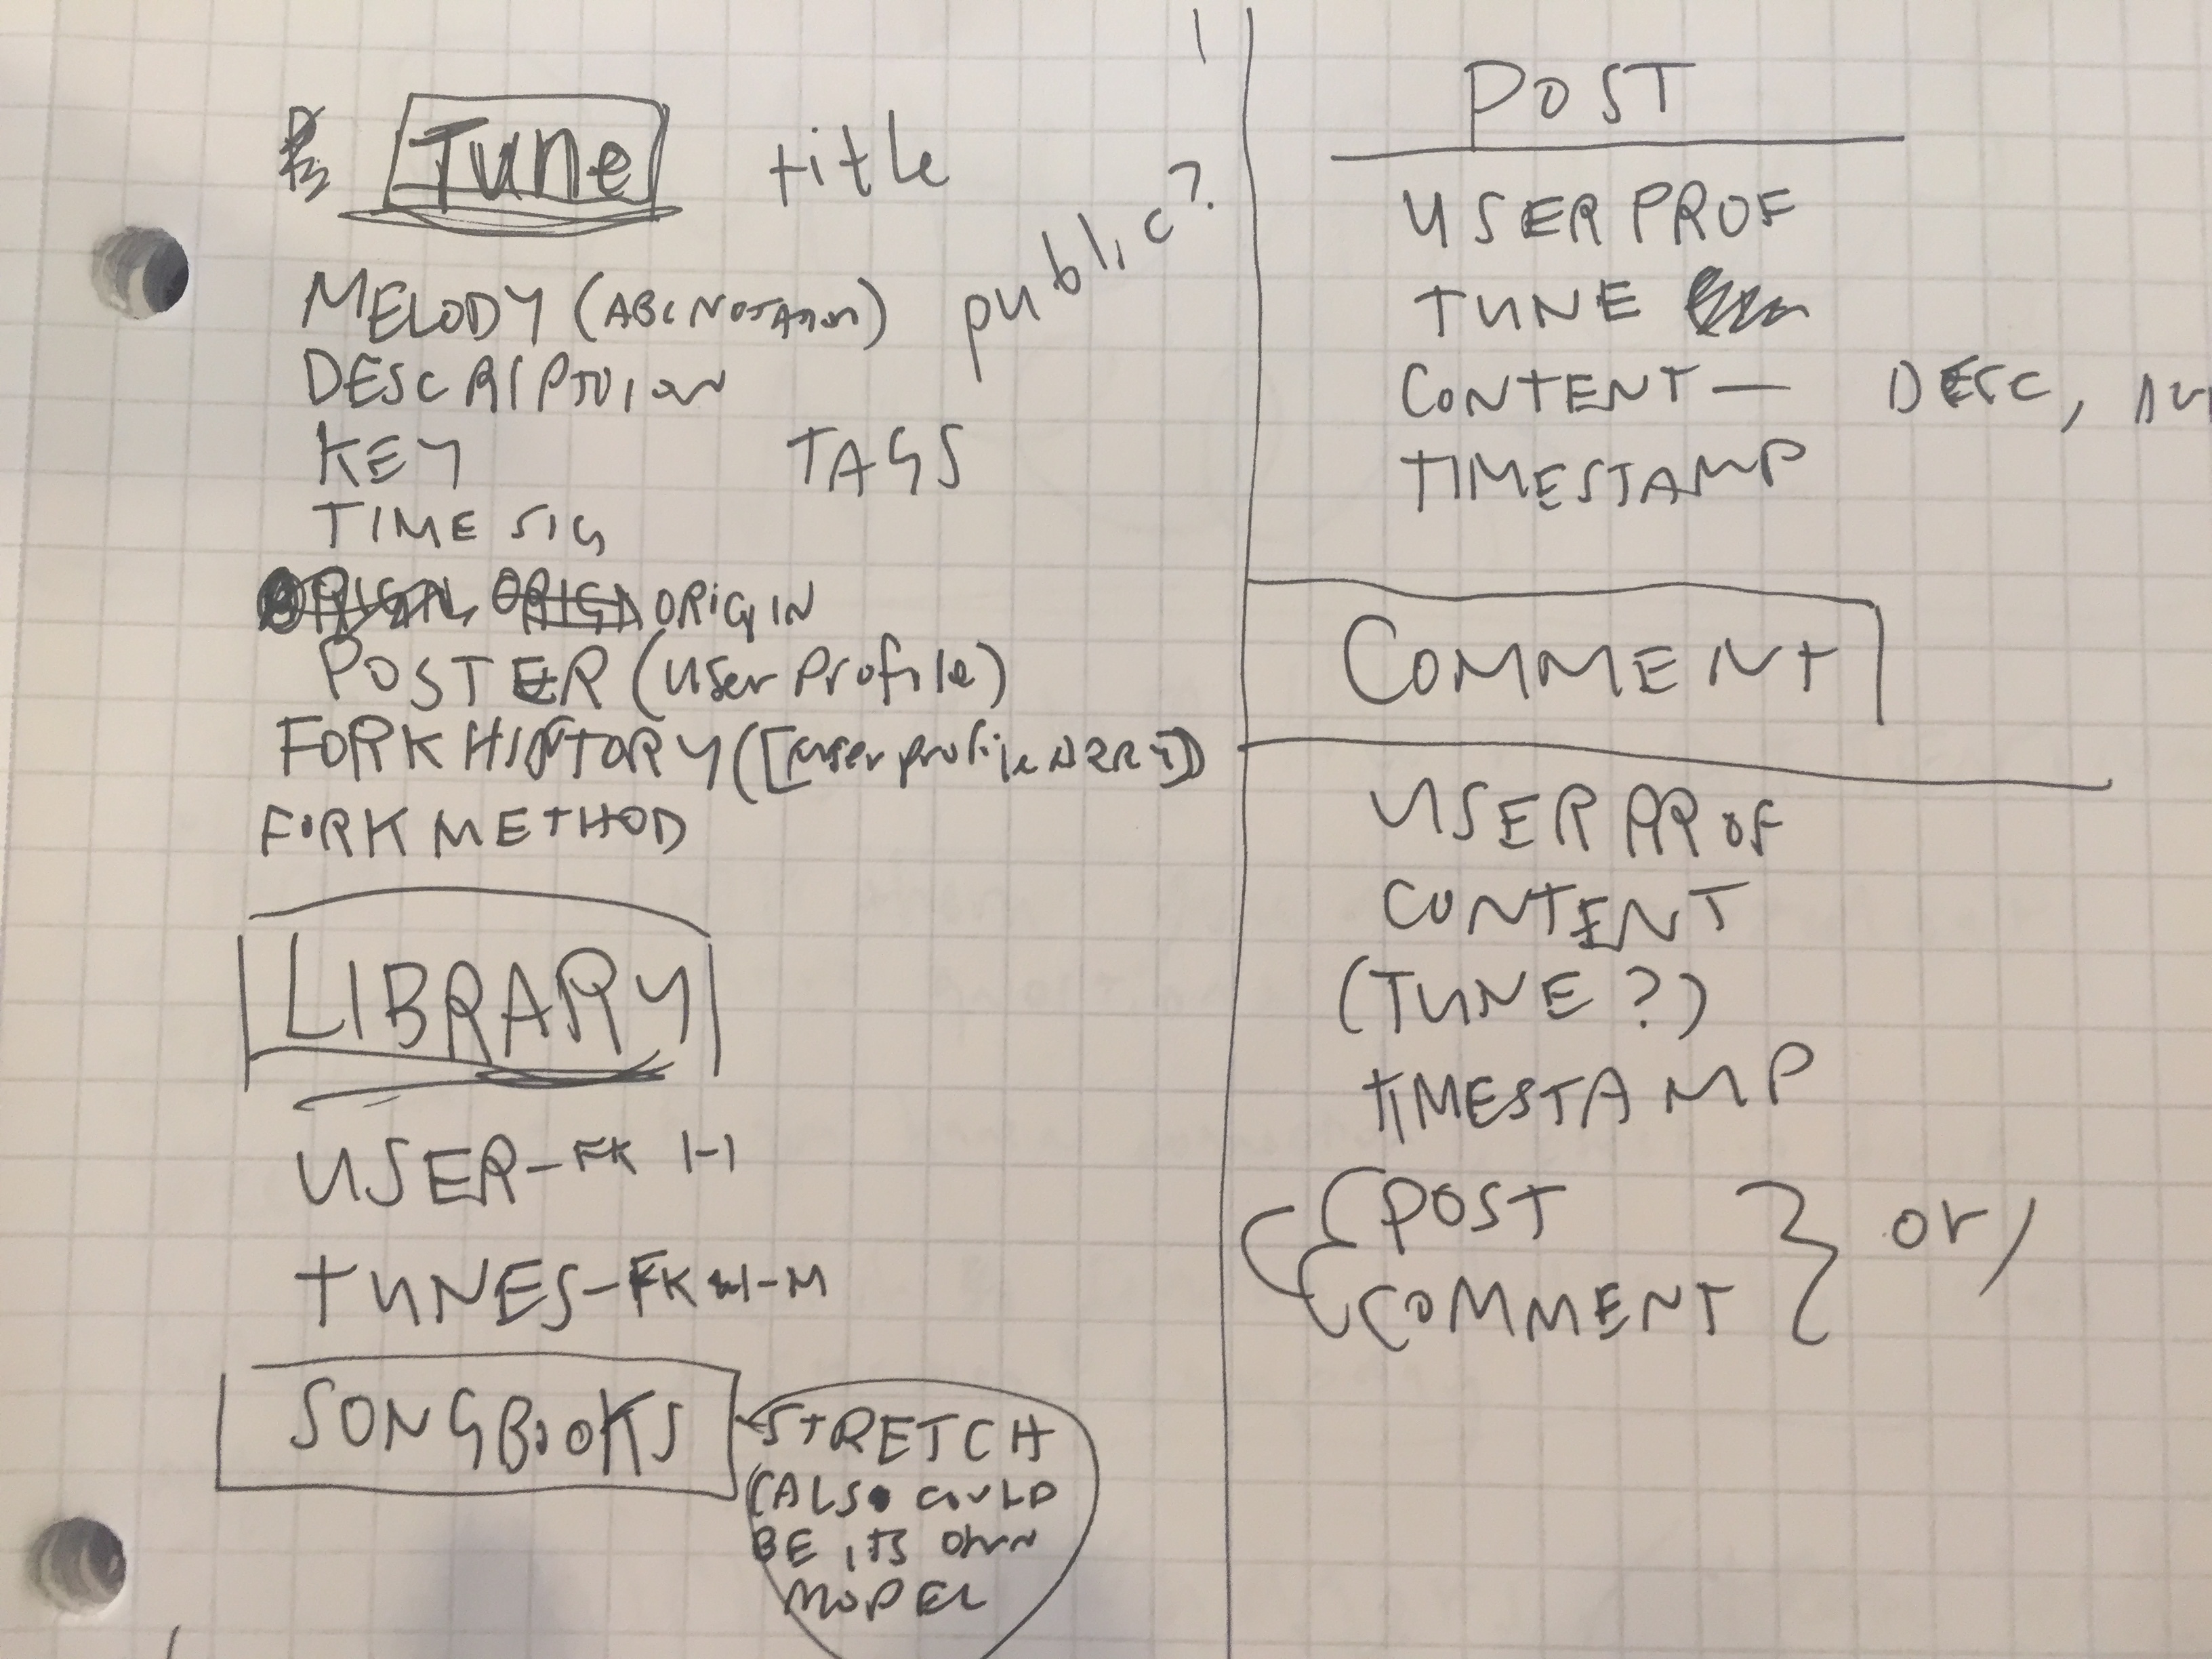 Tune title
public?
MELODY (ABC NOTATION)
DESCRIPTION
KEY TAGS
TIME SIG
ORIGIN
POSTER (User Profile)
FORK HISTORY ([user profile
FORK METHOD
LIBRARY
USER - FK 1-1
TUNES - FK 1-M
SONGBOOKS
STRETCH
(ALSO COULD
BE ITS OWN
MODEL
POST
USER PROF
TUNE
CONTENT — DESC,
TIMESTAMP
COMMENT
USER PROF
CONTENT
(TUNE?)
TIMESTAMP
{POST
{COMMENT } or /